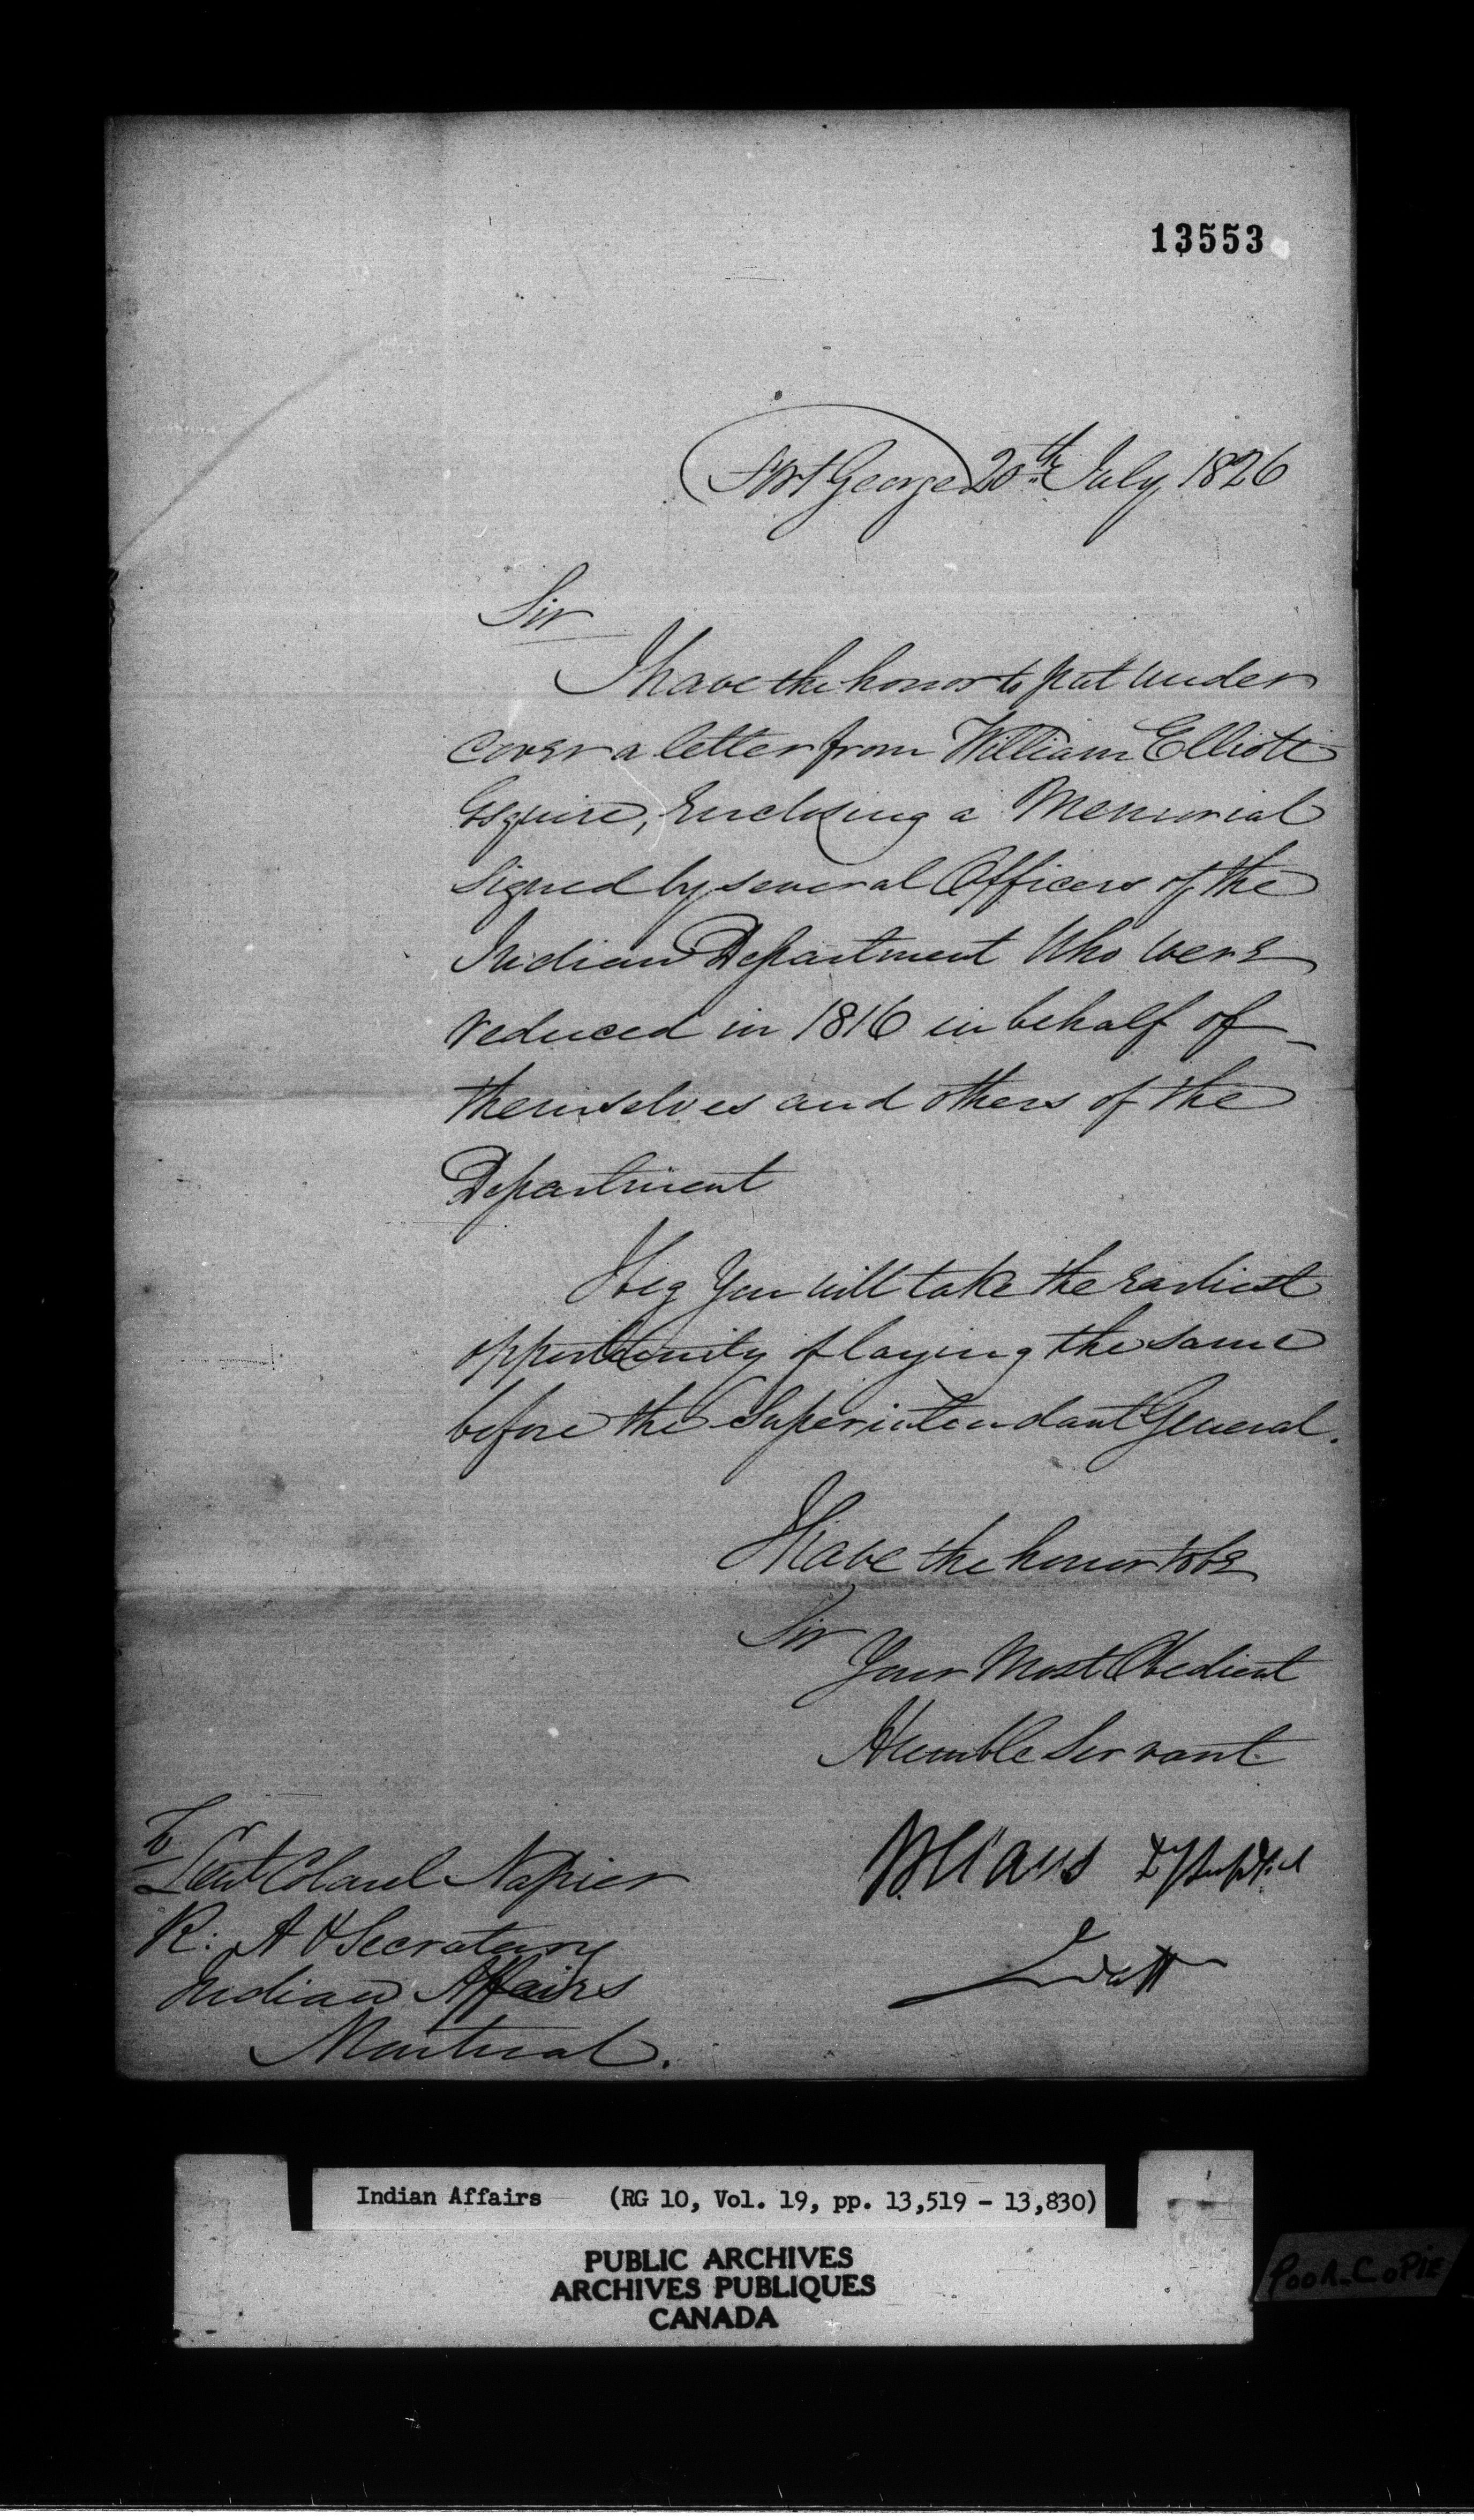 13553
Fort George 20th July 1826
Sir
I have the honor to put under
cover a letter from William Elliott
Esquire, Enclosing a Memorial
signed by several Officers of the
Indian Department Who were
reduced in 1816 in behalf of
themselves and others of the
Department
I beg You will take the Earliest
opportunity of laying the same
before the Superintendant General.
I Have the honor to be
Sir
Your Most Obedient
Humble Servant
To
Lieut Colonel Napier
R: A & Secretary
Indian Affairs
Montreal.
Indian Affairs (RG 10, Vol. 19, pp. 13,519 - 13,830)
PUBLIC ARCHIVES
ARCHIVES PUBLIQUES
CANADA
Poor_Copie